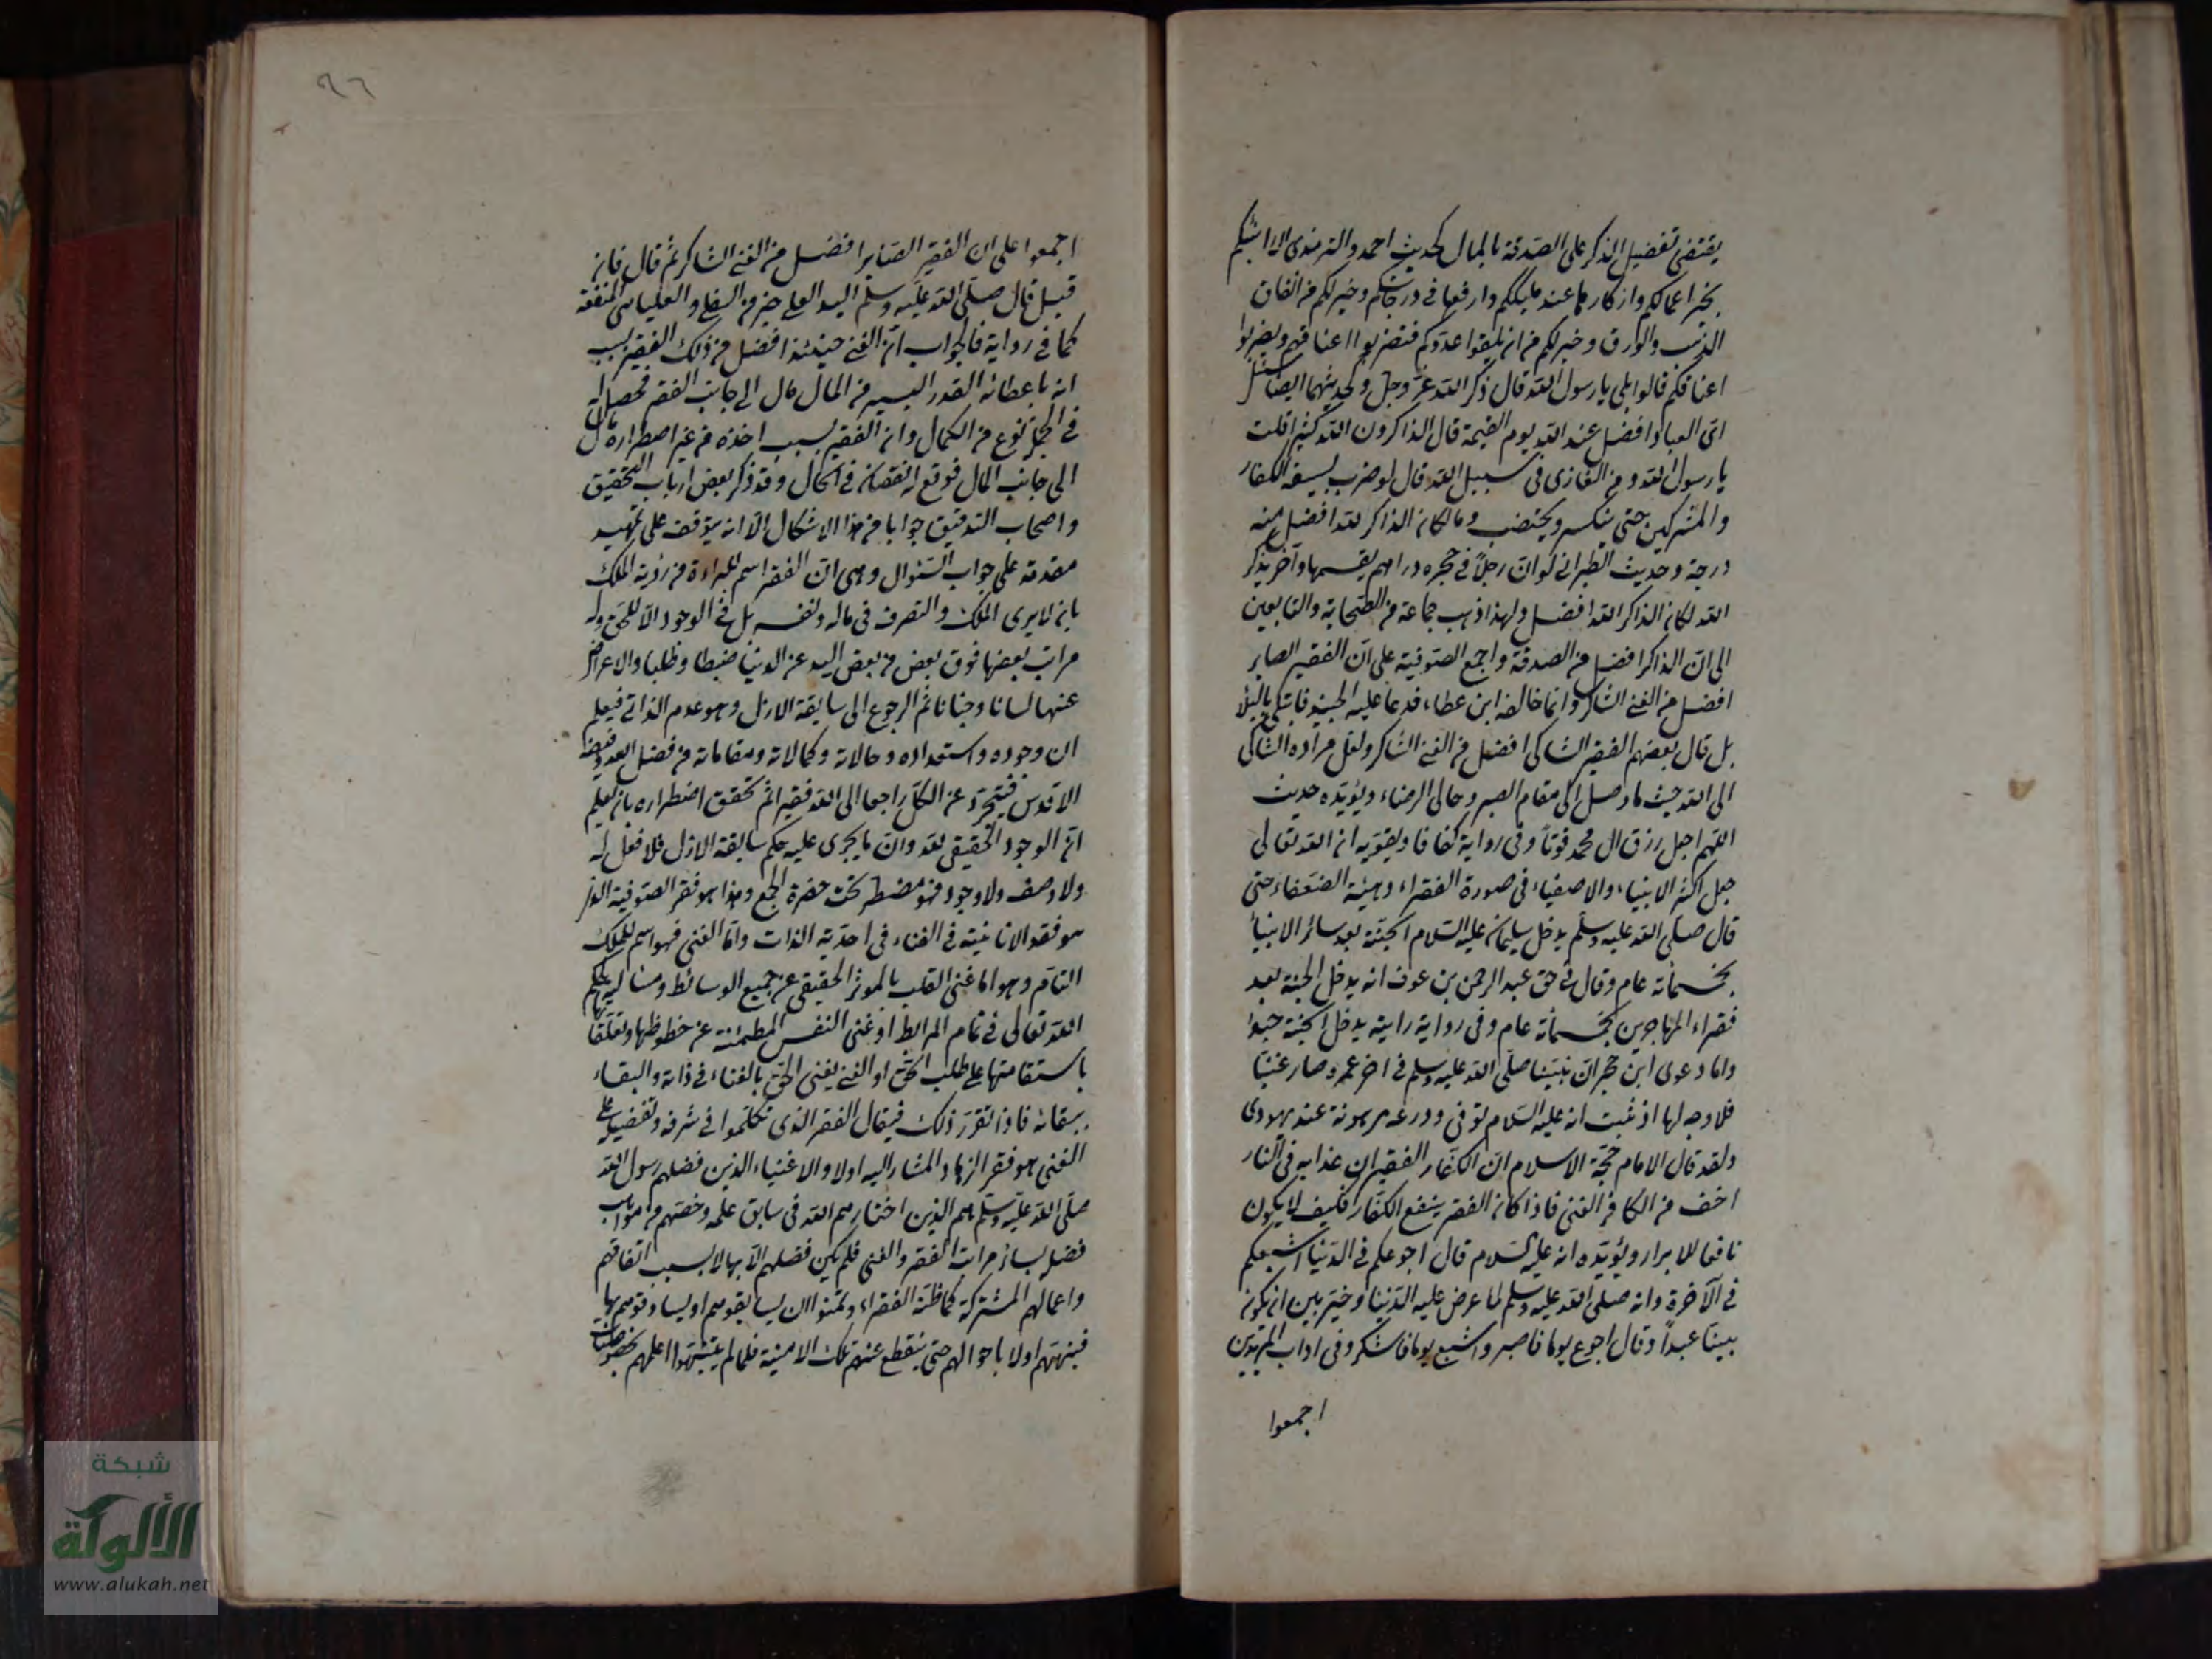 يقتضى تفضيل الذكر على الصدقة بالمال لحديث احمد والترمذى الا انبئكم
بخير اعمالكم وازكاها عند مليككم وارفعها فى درجاتكم وخير لكم من انفاق
الذهب والورق وخير لكم من ان تلقوا عدوكم فتضربوا اعناقهم ويضربوا
اعناقكم قالوا بلى يا رسول الله قال ذكر الله عز وجل ولحديثهما ايضا سئل
اى العباد افضل عند الله يوم القيمة قال الذاكرون الله كثيرا قلت
يا رسول الله ومن الغازى فى سبيل الله قال لو ضرب بسيفه الكفار
والمشركين حتى ينكسر ويختضب دما لكان الذاكر لله افضل منه
درجة وحديث الطبرانى لو ان رجلا فى حجره دراهم يقسمها وآخر يذكر
الله لكان الذاكر الله افضل ولهذا ذهب جماعة من الصحابة والتابعين
الى ان الذاكر افضل من الصدقة واجمع الصوفية على ان الفقير الصابر
افضل من الغنى الشاكر وانما خالفه ابن عطاء فدعا عليه الجنيد فابتلى بالبلاء
بل قال بعضهم الفقير الشاكى افضل من الغنى الشاكر ولعل مراده الشاكى
الى الله حيث ما وصل الى مقام الصبر وحالى الرضاء ويؤيده حديث
اللهم اجعل رزق ال محمد قوتا وفى رواية كفافا ويقويه ان الله تعالى
جعل اكثر الانبياء والاصفياء فى صورة الفقراء وهيئة الضعفاء حتى
قال صلى الله عليه وسلم يدخل سليمان عليه السلام الجنة بعد سائر الانبياء
بخمسمأته عام وقال فى حق عبد الرحمن بن عوف انه يدخل الجنة بعد
فقراء المهاجرين بخمسمأته عام وفى رواية رايته يدخل الجنة حبوا
واما دعوى ابن حجر ان نبينا صلى الله عليه وسلم فى اخر عمره صار غنيا
فلا وجه لها اذ ثبت انه عليه السلام توفى ودرعه مرهونة عند يهودى
ولقد قال الامام حجة الاسلام ان الكفار الفقير ان عذابه فى النار
اخف من الكافر الغنى فاذا كان الفقر ينفع الكفار فكيف لا يكون
نافعا للابرار ويؤيده انه عليه السلام قال اجوعكم فى الدنيا اشبعكم
فى الآخرة وانه صلى الله عليه وسلم لما عرض عليه الدنيا وخير بين ان يكون
نبيا عبدا وقال اجوع يوما فاصبر واشبع يوما فاشكر وفى اداب المريدين
اجمعوا
٩٦
اجمعوا على ان الفقير الصابر افضل من الغنى الشاكر ثم قال فان
قيل قال صلى الله عليه وسلم اليد العليا خير من السفلى والعليا هى المنفقة
كما فى رواية فالجواب ان الغنى حينئذ افضل من ذلك الفقير بسبب
انه باعطائه القدر اليسير من المال مال الى جانب الفقر فحصل له
فى الجملة نوع من الكمال وان الفقير بسبب اخذه من غير اضطراره مال
الى جانب المال فوقع له نقصان فى الحال وقد ذكر بعض ارباب التحقيق
واصحاب التدقيق جوابا من هذا الاشكال الا انه يتوقف على تمهيد
مقدمة على جواب السئوال وهى ان الفقر اسم للبراءة من رؤية الملك
بان لا يرى الملك والتصرف فى ماله ونفسه بل فى الوجود الا للحق وله
مراتب بعضها فوق بعض من بعض اليد عن الدنيا ضبطا وطلبا والاعراض
عنها لسانا وجنانا ثم الرجوع الى سابقة الازل وهو عدم الذاتى فيعلم
ان وجوده واستعداده وحالاته وكمالاته ومقاماته من فضل الله وفيضه
الاقدس فيتجرد عن الكل راجعا الى الله فقيرا ثم تحقق اضطراره بان يعلم
ان الوجود الحقيقى لله وان ما يجرى عليه بحكم سابقة الازل فلا فعل له
ولا وصف ولا وجود فهو مضطر تحت حضرة الجمع وهذا هو فقر الصوفية الذى
هو فقد الانانية فى الفناء فى احدية الذات واما الغنى فهو اسم للملك
التام وهو اما غنى القلب بالموثر الحقيقى عن جميع الوسائط ومسالمته لحكم
الله تعالى فى تمام المرابط او غنى النفس المطمئنة عن حظوظها وتعلقاتها
باستقامتها على طلب الحق او الغنى بغنى الحق بالفناء فى ذاته والبقاء
ببقائه فاذا تقرر ذلك فيقال الفقر الذى تكلموا فى شرفه وتفضيله على
الغنى هو فقر الزهاد المشار اليه اولا والاغنياء الذين فضلهم رسول الله
صلى الله عليه وسلم هم الذين اختارهم الله فى سابق علمه وخصهم من مواهب
فضله بسائر مراتب الفقر والغنى فلم يكن فضلهم الا بها لا بسبب انفاقهم
واعمالهم المشتركة كما ظنه الفقراء وتمنوا ان يسابقوهم او يساوقوهم بها
فنبههم اولا باحوالهم حتى ينقطع عنهم تلك الامنية فلما لم يتنبهوا اعلمهم
شبكة
الألوكة
www.alukah.net